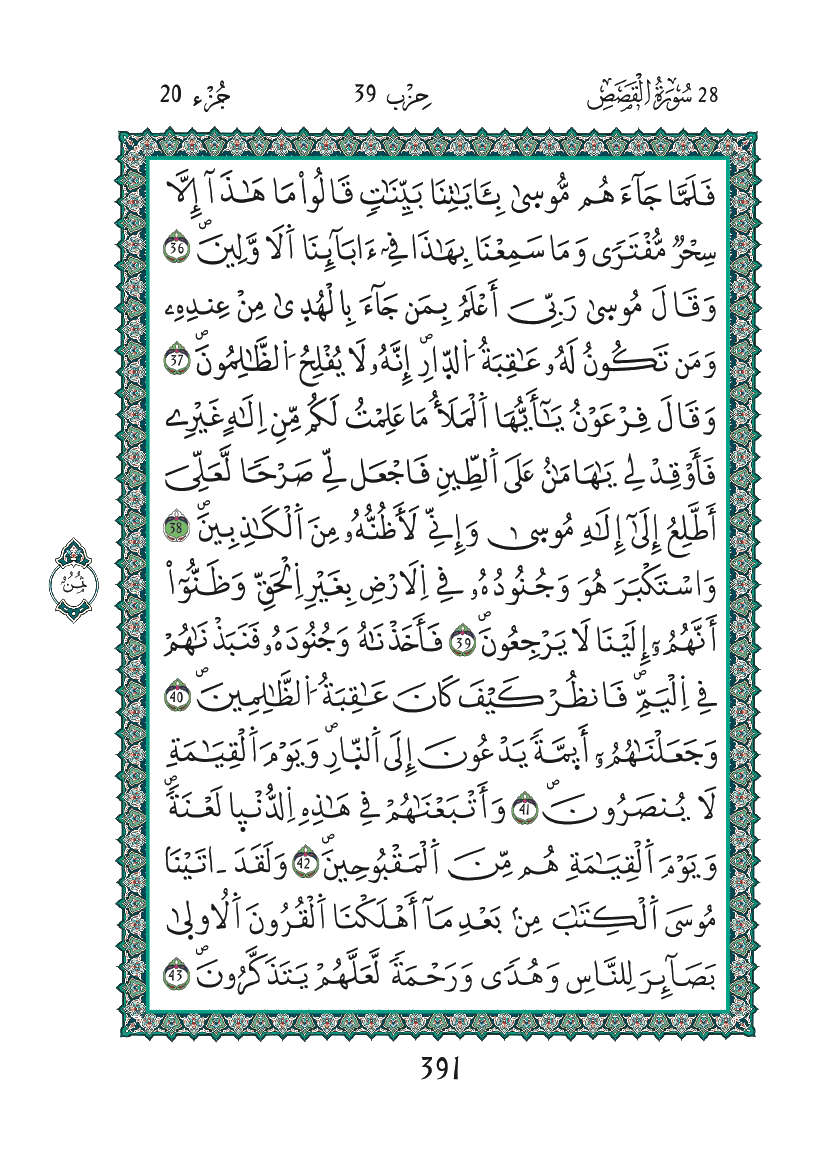 28 سُورَةُ اُلْقَصَصِ
حِزْب 39
جُزْء 20
فَلَمَّا جَآءَهُم مُّوسۭىٰ بِـَٔايَٰتِنَا بَيِّنَٰتٖ قَالُواْ مَا هَٰذَآ إِلَّا
سِحْرٞ مُّفْتَرٗى وَمَا سَمِعْنَا بِهَٰذَا فِےٓ ءَابَآئِنَا اَ۬لَاوَّلِينَۖ 36
وَقَالَ مُوسۭىٰ رَبِّيَ أَعْلَمُ بِمَن جَآءَ بِالْهُدۭىٰ مِنْ عِندِهِۦ
وَمَن تَكُونُ لَهُۥ عَٰقِبَةُ اُ۬لدّ۪ارِۖ إِنَّهُۥ لَا يُفْلِحُ اُ۬لظَّٰلِمُونَۖ 37
وَقَالَ فِرْعَوْنُ يَٰٓأَيُّهَا اَ۬لْمَلَأُ مَا عَلِمْتُ لَكُم مِّنِ اِلَٰهٍ غَيْرِے
فَأَوْقِدْ لِے يَٰهَٰمَٰنُ عَلَى اَ۬لطِّينِ فَاجْعَل لِّے صَرْحٗا لَّعَلِّيَ
أَطَّلِعُ إِلَىٰٓ إِلَٰهِ مُوسۭىٰ وَإِنِّے لَأَظُنُّهُۥ مِنَ اَ۬لْكَٰذِبِينَۖ 38
وَاسْتَكْبَرَ هُوَ وَجُنُودُهُۥ فِے اِ۬لَارْضِ بِغَيْرِ اِ۬لْحَقِّ وَظَنُّوٓاْ
أَنَّهُمُۥٓ إِلَيْنَا لَا يَرْجِعُونَۖ 39 فَأَخَذْنَٰهُ وَجُنُودَهُۥ فَنَبَذْنَٰهُمْ
فِے اِ۬لْيَمِّۖ فَانظُرْ كَيْفَ كَانَ عَٰقِبَةُ اُ۬لظَّٰلِمِينَۖ 40
وَجَعَلْنَٰهُمُۥٓ أَيِمَّةٗ يَدْعُونَ إِلَى اَ۬لنّ۪ارِۖ وَيَوْمَ اَ۬لْقِيَٰمَةِ
لَا يُنصَرُونَۖ 41 وَأَتْبَعْنَٰهُمْ فِے هَٰذِهِ اِ۬لدُّنْي۪ا لَعْنَةٗۖ
وَيَوْمَ اَ۬لْقِيَٰمَةِ هُم مِّنَ اَ۬لْمَقْبُوحِينَۖ 42 وَلَقَدَ ـ اتَيْنَا
مُوسَى اَ۬لْكِتَٰبَ مِنۢ بَعْدِ مَآ أَهْلَكْنَا اَ۬لْقُرُونَ اَ۬لُاول۪ىٰ
بَصَآئِرَ لِلنَّاسِ وَهُدٗى وَرَحْمَةٗ لَّعَلَّهُمْ يَتَذَكَّرُونَۖ 43
ثُمُنُ
391